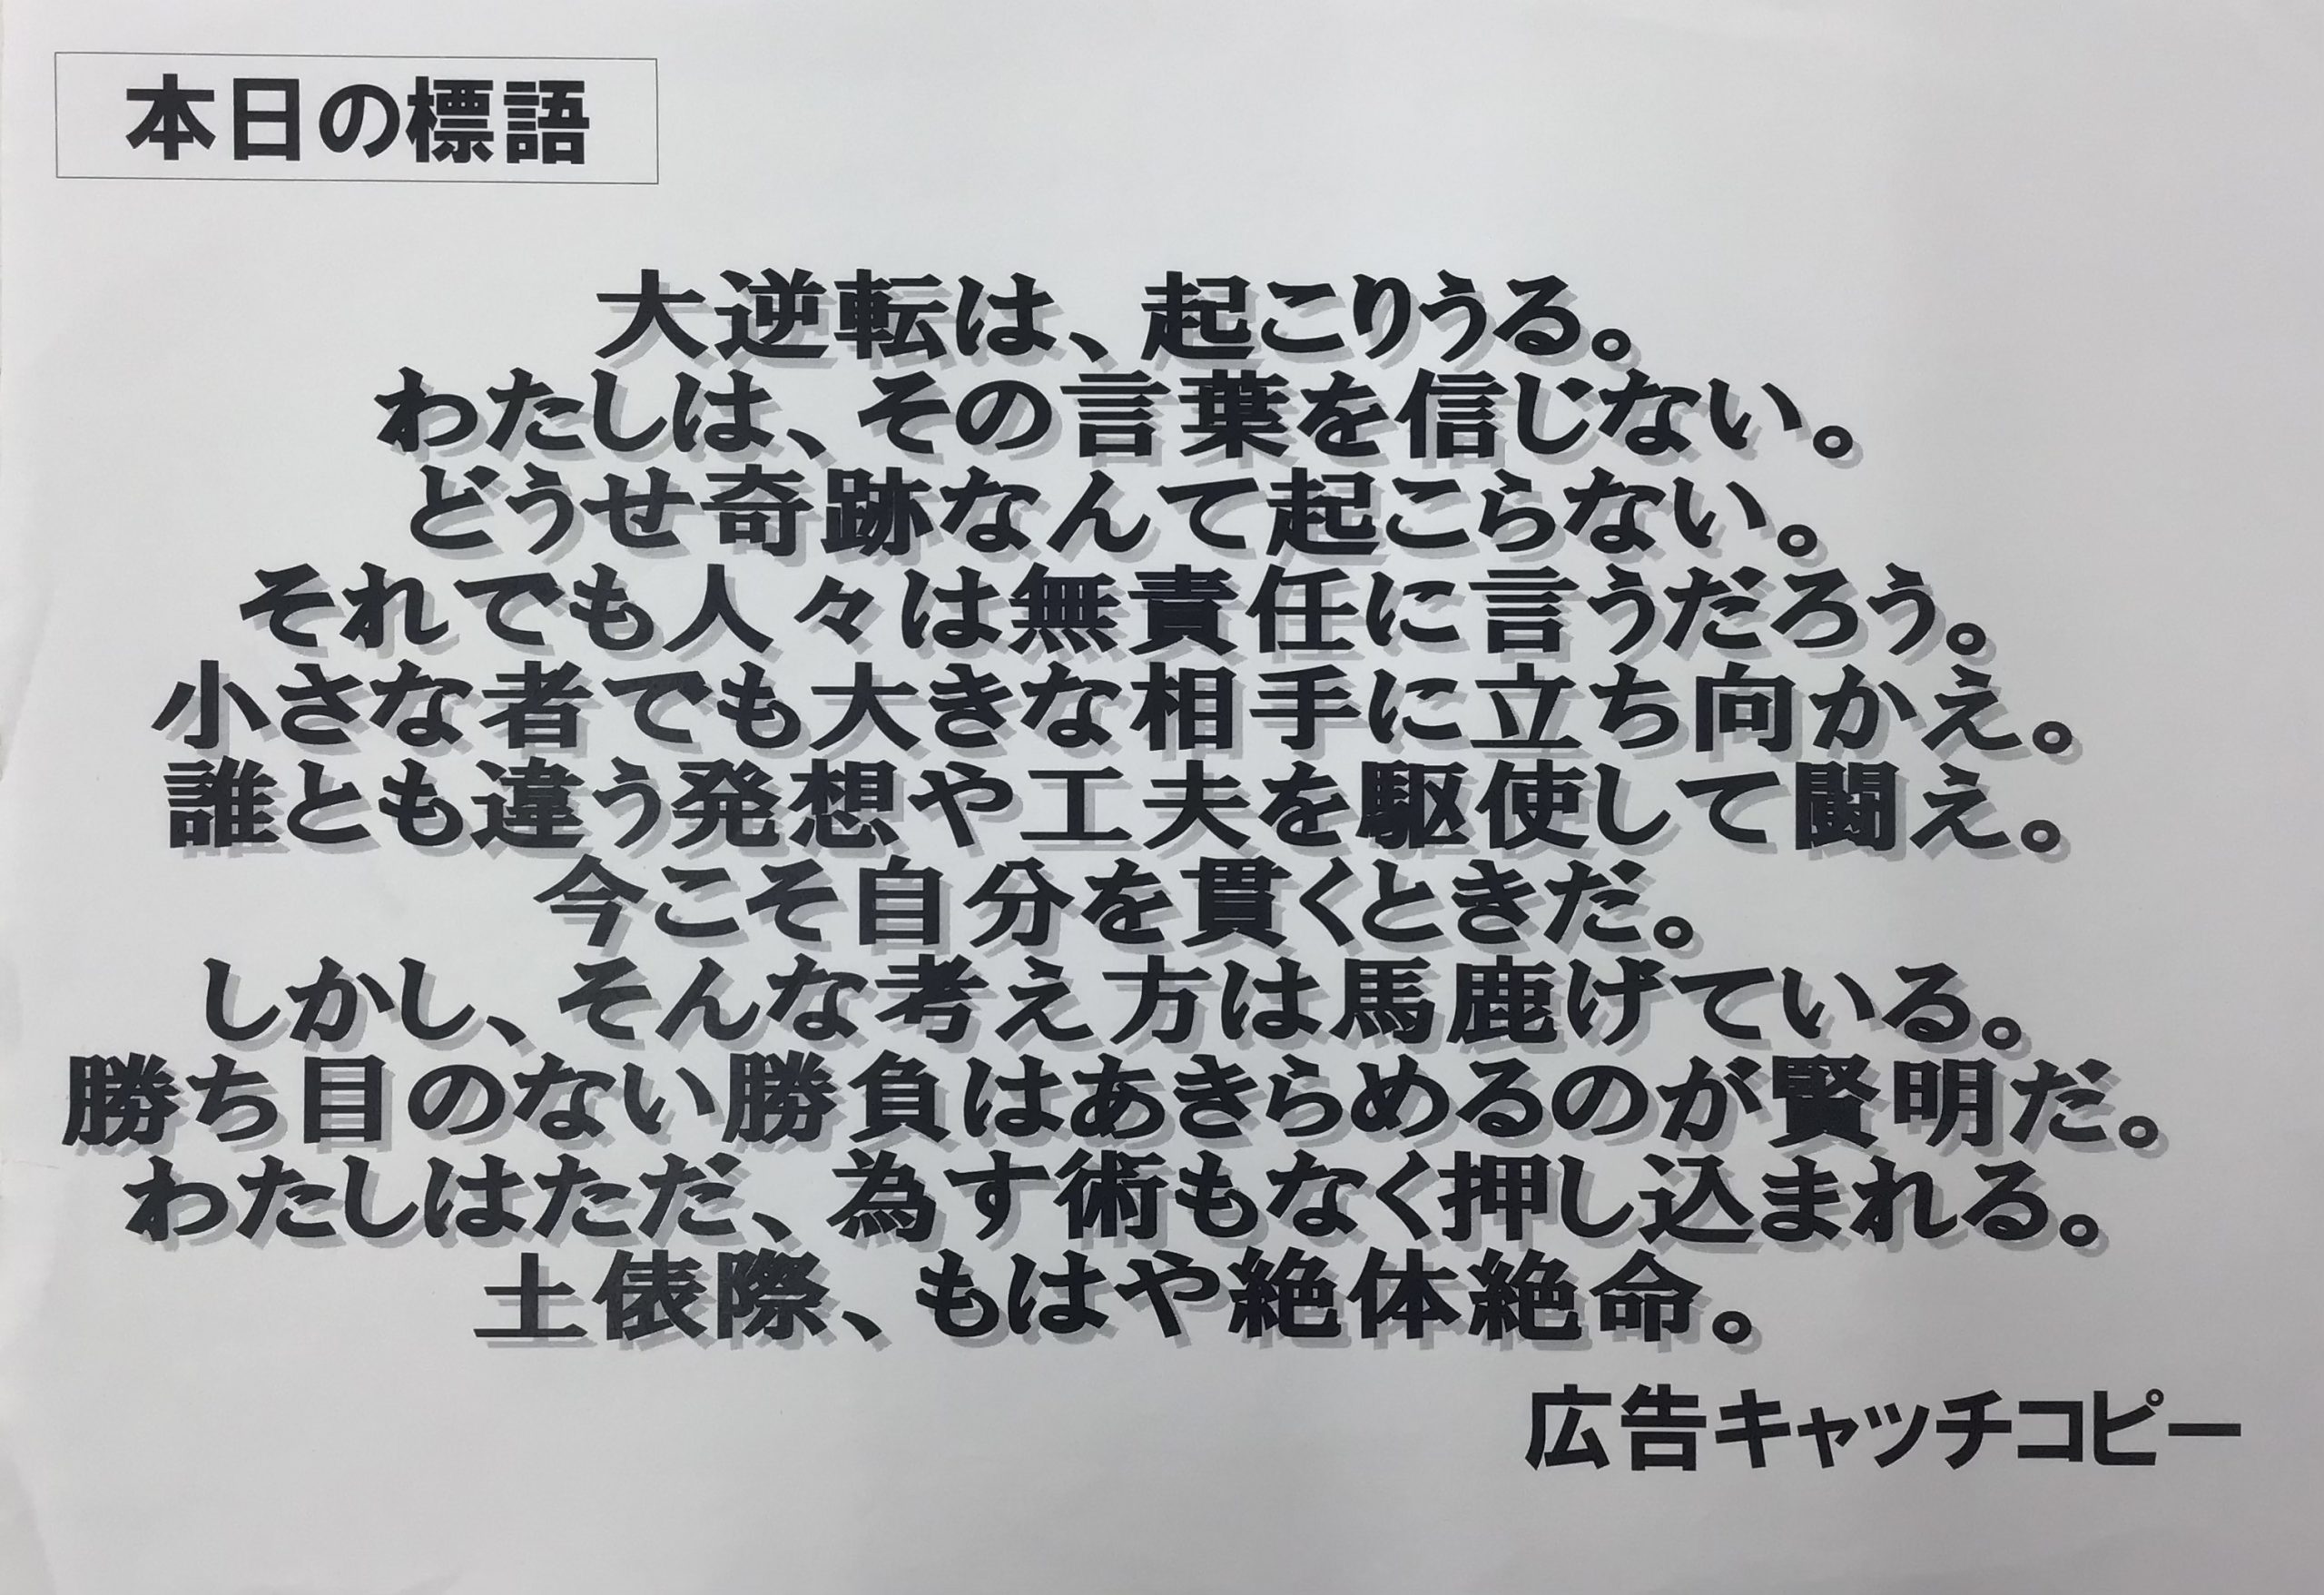 本日の標語
大逆転は、起こりうる。
わたしは、その言葉を信じない。
どうせ奇跡なんて起こらない。
それでも人々は無責任に言うだろう。
小さな者でも大きな相手に立ち向かえ。
誰とも違う発想や工夫を駆使して闘え。
今こそ自分を貫くときだ。
しかし、そんな考え方は馬鹿げている。
勝ち目のない勝負はあきらめるのが賢明だ。
わたしはただ、為す術もなく押し込まれる。
土俵際、もはや絶体絶命。
広告キャッチコピー